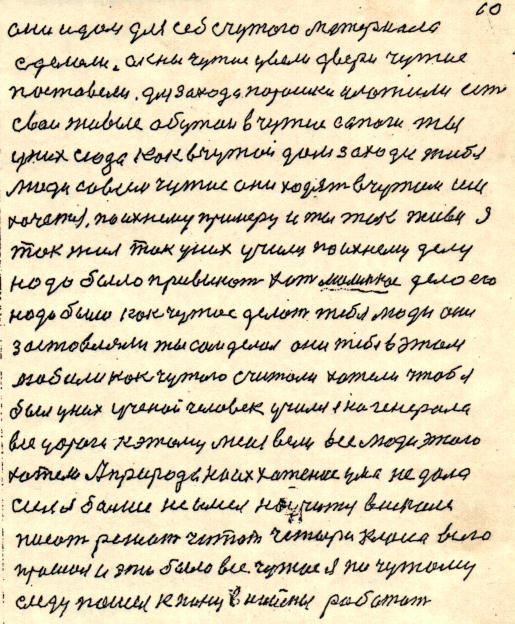 60
они и дом для себ с чутого материала
сделали. окны чутие двери чутие
поставели. для захода порошки уложили
свои живые обутои в чутие сапоги ты
уних сюда как в чутой дом заходи тибя
люди совсем чутие они ходят в чутом им
хочется, по ихнему примеру и ты так живи я
так жил так уних учился по ихнему делу
надо было привыкат хот малинкое дело его
надо было как чутое делат тебя люди они
заставляли ты сам делал они тибя в этом
любили как чутого считали хотели чтоб я
был уних ученой человек учился на генерала
все дороги к этому меня вели все люди этого
хотели А природа на их хатение ума не дала
сил я балше не имел научится в школе
писат решат читат четыри класа было
прошол и это было все чутое я по чутому
следу пошел к пану в наймы работат